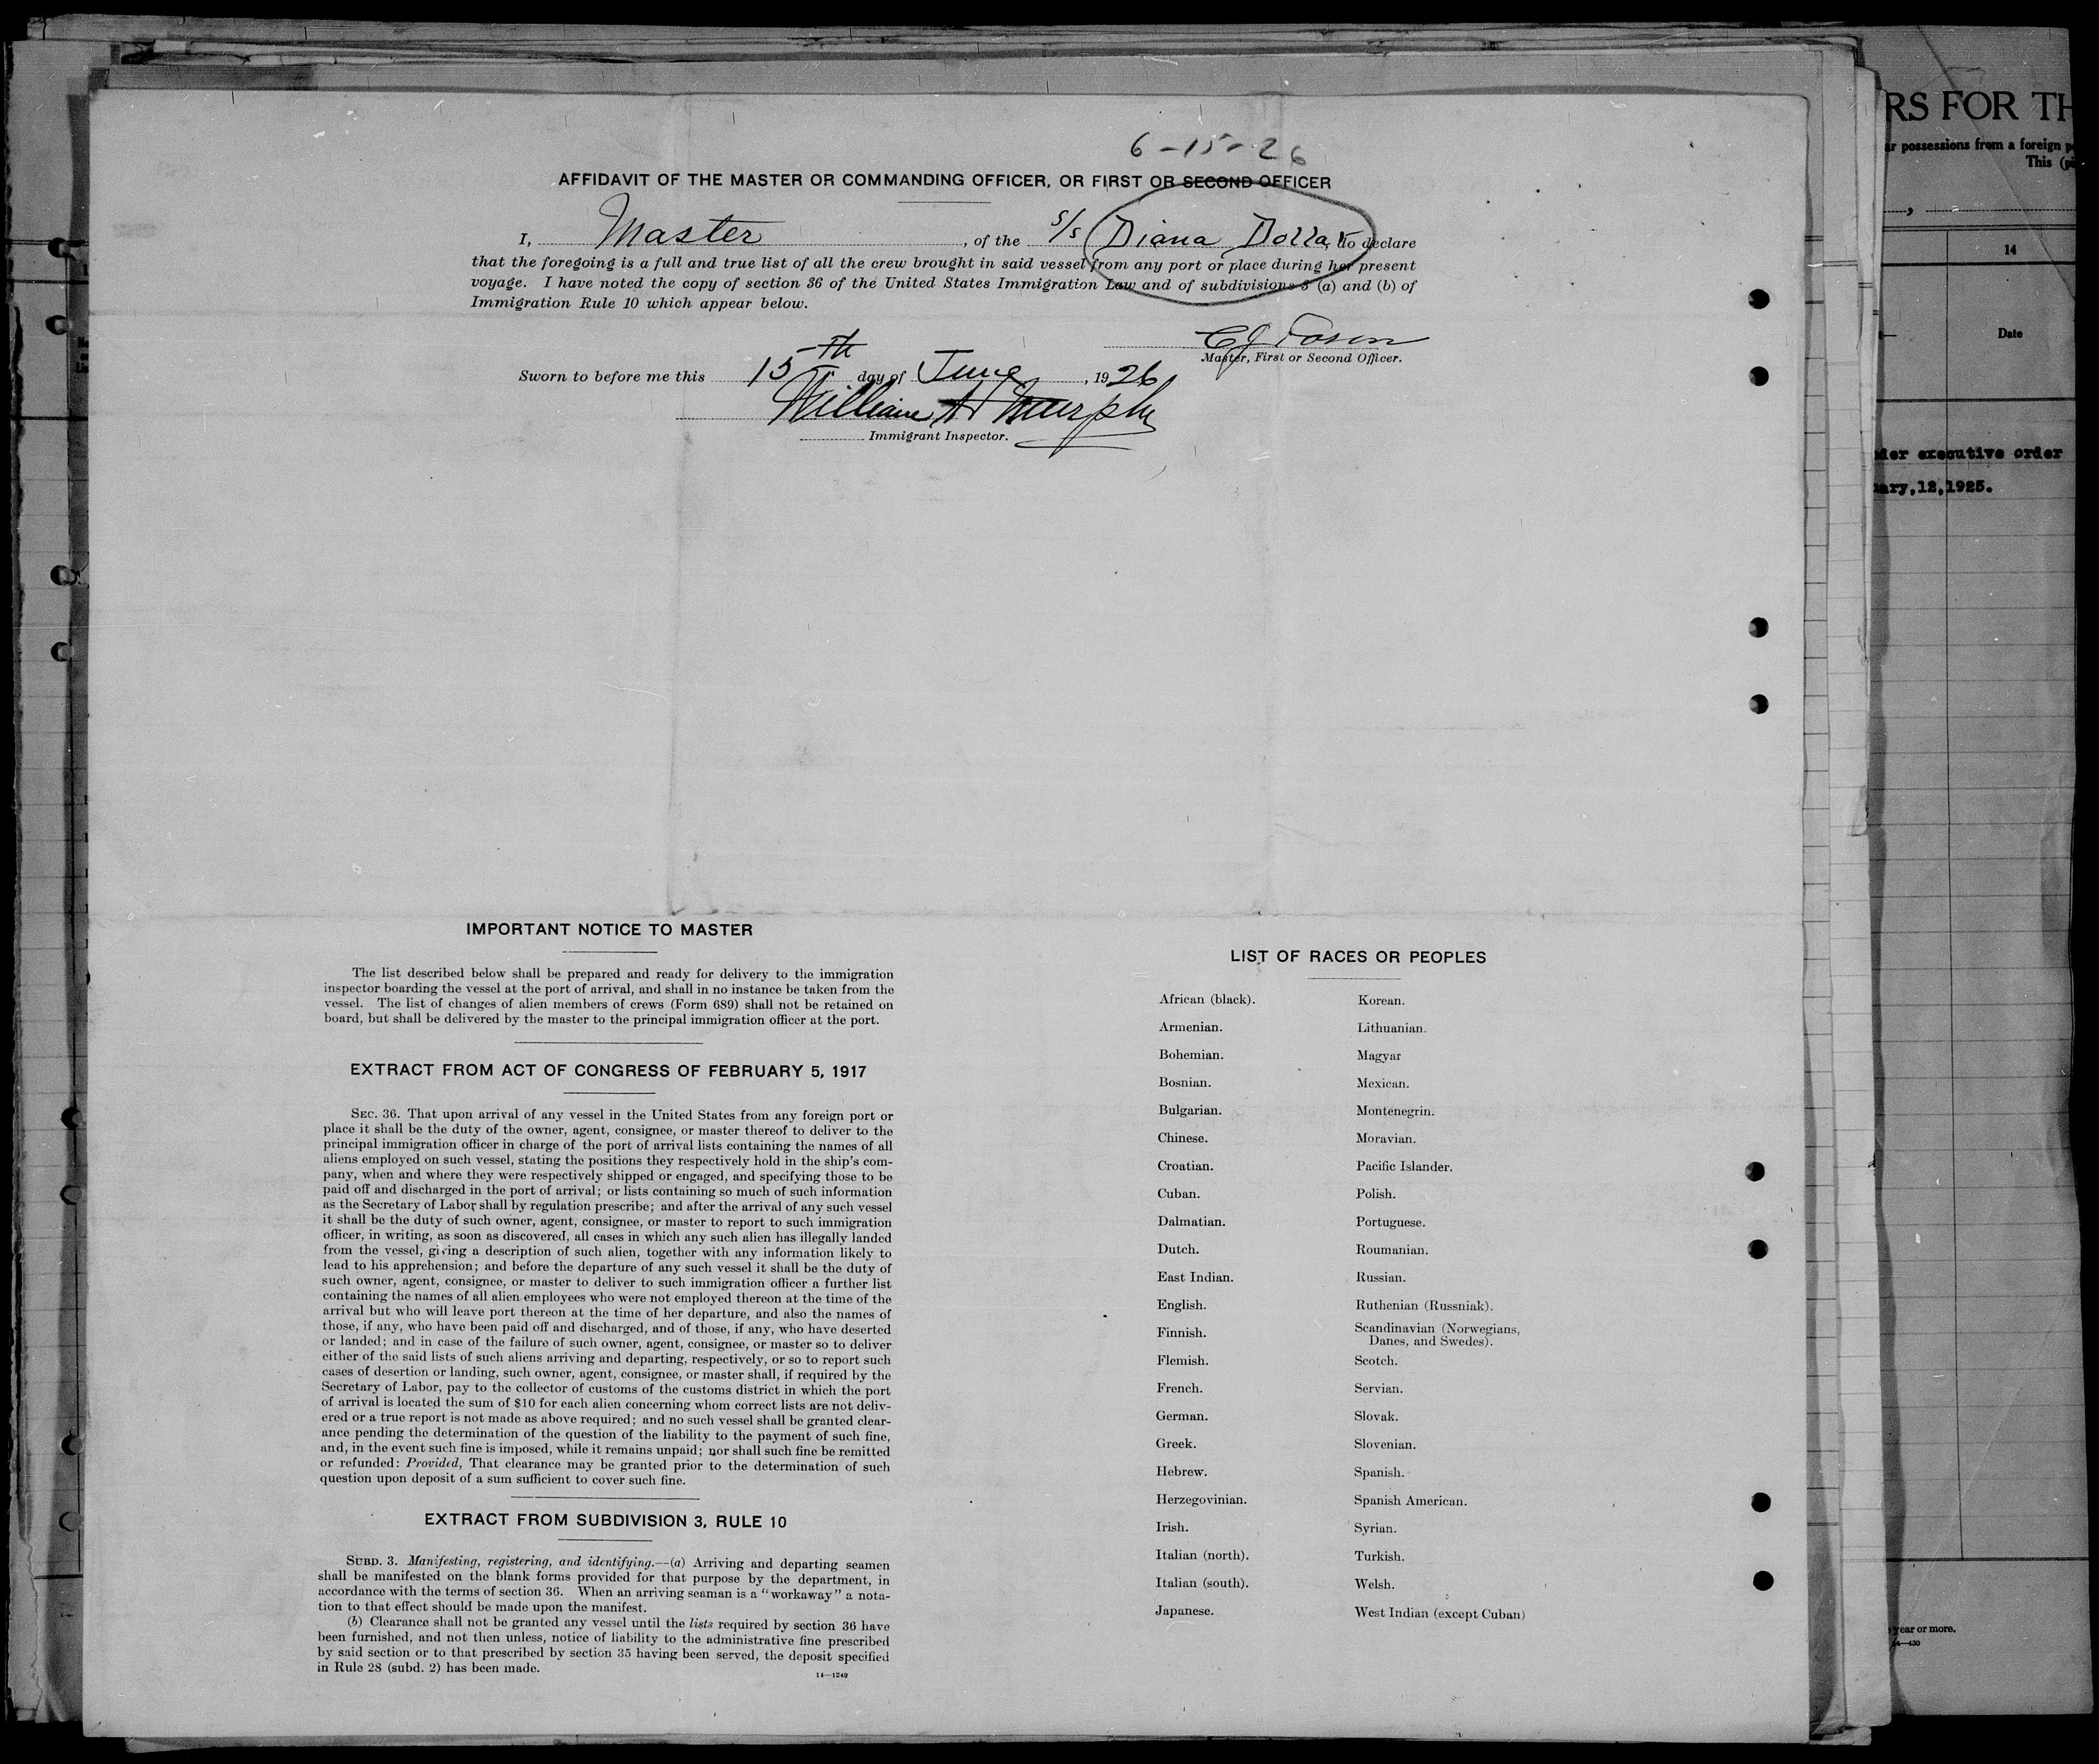 6-15-26
AFFIDAVIT OF THE MASTER OR COMMANDING OFFICER, OR FIRST OR SECOND OFFICER
I, Master, of the S/S Diana Dollar, do declare
that the foregoing is a full and true list of all the crew brought in said vessel from any port or place during her present
voyage. I have noted the copy of section 36 of the United States Immigration Law and of subdivisions 3 (a) and (b) of
Immigration Rule 10 which appear below.
Master, First or Second Officer.
Sworn to before me this 15th day of June, 1926
William A Murphy
Immigrant Inspector.
IMPORTANT NOTICE TO MASTER
The list described below shall be prepared and ready for delivery to the immigration
inspector boarding the vessel at the port of arrival, and shall in no instance be taken from the
vessel. The list of changes of alien members of crews (Form 689) shall not be retained on
board, but shall be delivered by the master to the principal immigration officer at the port.
EXTRACT FROM ACT OF CONGRESS OF FEBRUARY 5, 1917
SEC. 36. That upon arrival of any vessel in the United States from any foreign port or
place it shall be the duty of the owner, agent, consignee, or master thereof to deliver to the
principal immigration officer in charge of the port of arrival lists containing the names of all
aliens employed on such vessel, stating the positions they respectively hold in the ship's com-
pany, when and where they were respectively shipped or engaged, and specifying those to be
paid off and discharged in the port of arrival; or lists containing so much of such information
as the Secretary of Labor shall by regulation prescribe; and after the arrival of any such vessel
it shall be the duty of such owner, agent, consignee, or master to report to such immigration
officer, in writing, as soon as discovered, all cases in which any such alien has illegally landed
from the vessel, giving a description of such alien, together with any information likely to
lead to his apprehension; and before the departure of any such vessel it shall be the duty of
such owner, agent, consignee, or master to deliver to such immigration officer a further list
containing the names of all alien employees who were not employed thereon at the time of the
arrival but who will leave port thereon at the time of her departure, and also the names of
those, if any, who have been paid off and discharged, and of those, if any, who have deserted
or landed; and in case of the failure of such owner, agent, consignee, or master so to deliver
either of the said lists of such aliens arriving and departing, respectively, or so to report such
cases of desertion or landing, such owner, agent, consignee, or master shall, if required by the
Secretary of Labor, pay to the collector of customs of the customs district in which the port
of arrival is located the sum of $10 for each alien concerning whom correct lists are not deliv-
ered or a true report is not made as above required; and no such vessel shall be granted clear-
ance pending the determination of the question of the liability to the payment of such fine,
and, in the event such fine is imposed, while it remains unpaid; nor shall such fine be remitted
or refunded: Provided, That clearance may be granted prior to the determination of such
question upon deposit of a sum sufficient to cover such fine.
EXTRACT FROM SUBDIVISION 3, RULE 10
SUBD. 3. Manifesting, registering, and identifying.—(a) Arriving and departing seamen
shall be manifested on the blank forms provided for that purpose by the department, in
accordance with the terms of section 36. When an arriving seaman is a "workaway" a nota-
tion to that effect should be made upon the manifest.
(b) Clearance shall not be granted any vessel until the lists required by section 36 have
been furnished, and not then unless, notice of liability to the administrative fine prescribed
by said section or to that prescribed by section 35 having been served, the deposit specified
in Rule 28 (subd. 2) has been made.
14—1240
LIST OF RACES OR PEOPLES
African (black). Korean.
Armenian. Lithuanian.
Bohemian. Magyar
Bosnian. Mexican.
Bulgarian. Montenegrin.
Chinese. Moravian.
Croatian. Pacific Islander.
Cuban. Polish.
Dalmatian. Portuguese.
Dutch. Roumanian.
East Indian. Russian.
English. Ruthenian (Russniak).
Finnish. Scandinavian (Norwegians,
Danes, and Swedes).
Flemish. Scotch.
French. Servian.
German. Slovak.
Greek. Slovenian.
Hebrew. Spanish.
Herzegovinian. Spanish American.
Irish. Syrian.
Italian (north). Turkish.
Italian (south). Welsh.
Japanese. West Indian (except Cuban)
RS FOR TH
possessions from a foreign
This
14
Date
executive order
12, 1925.
year or more.
14—430